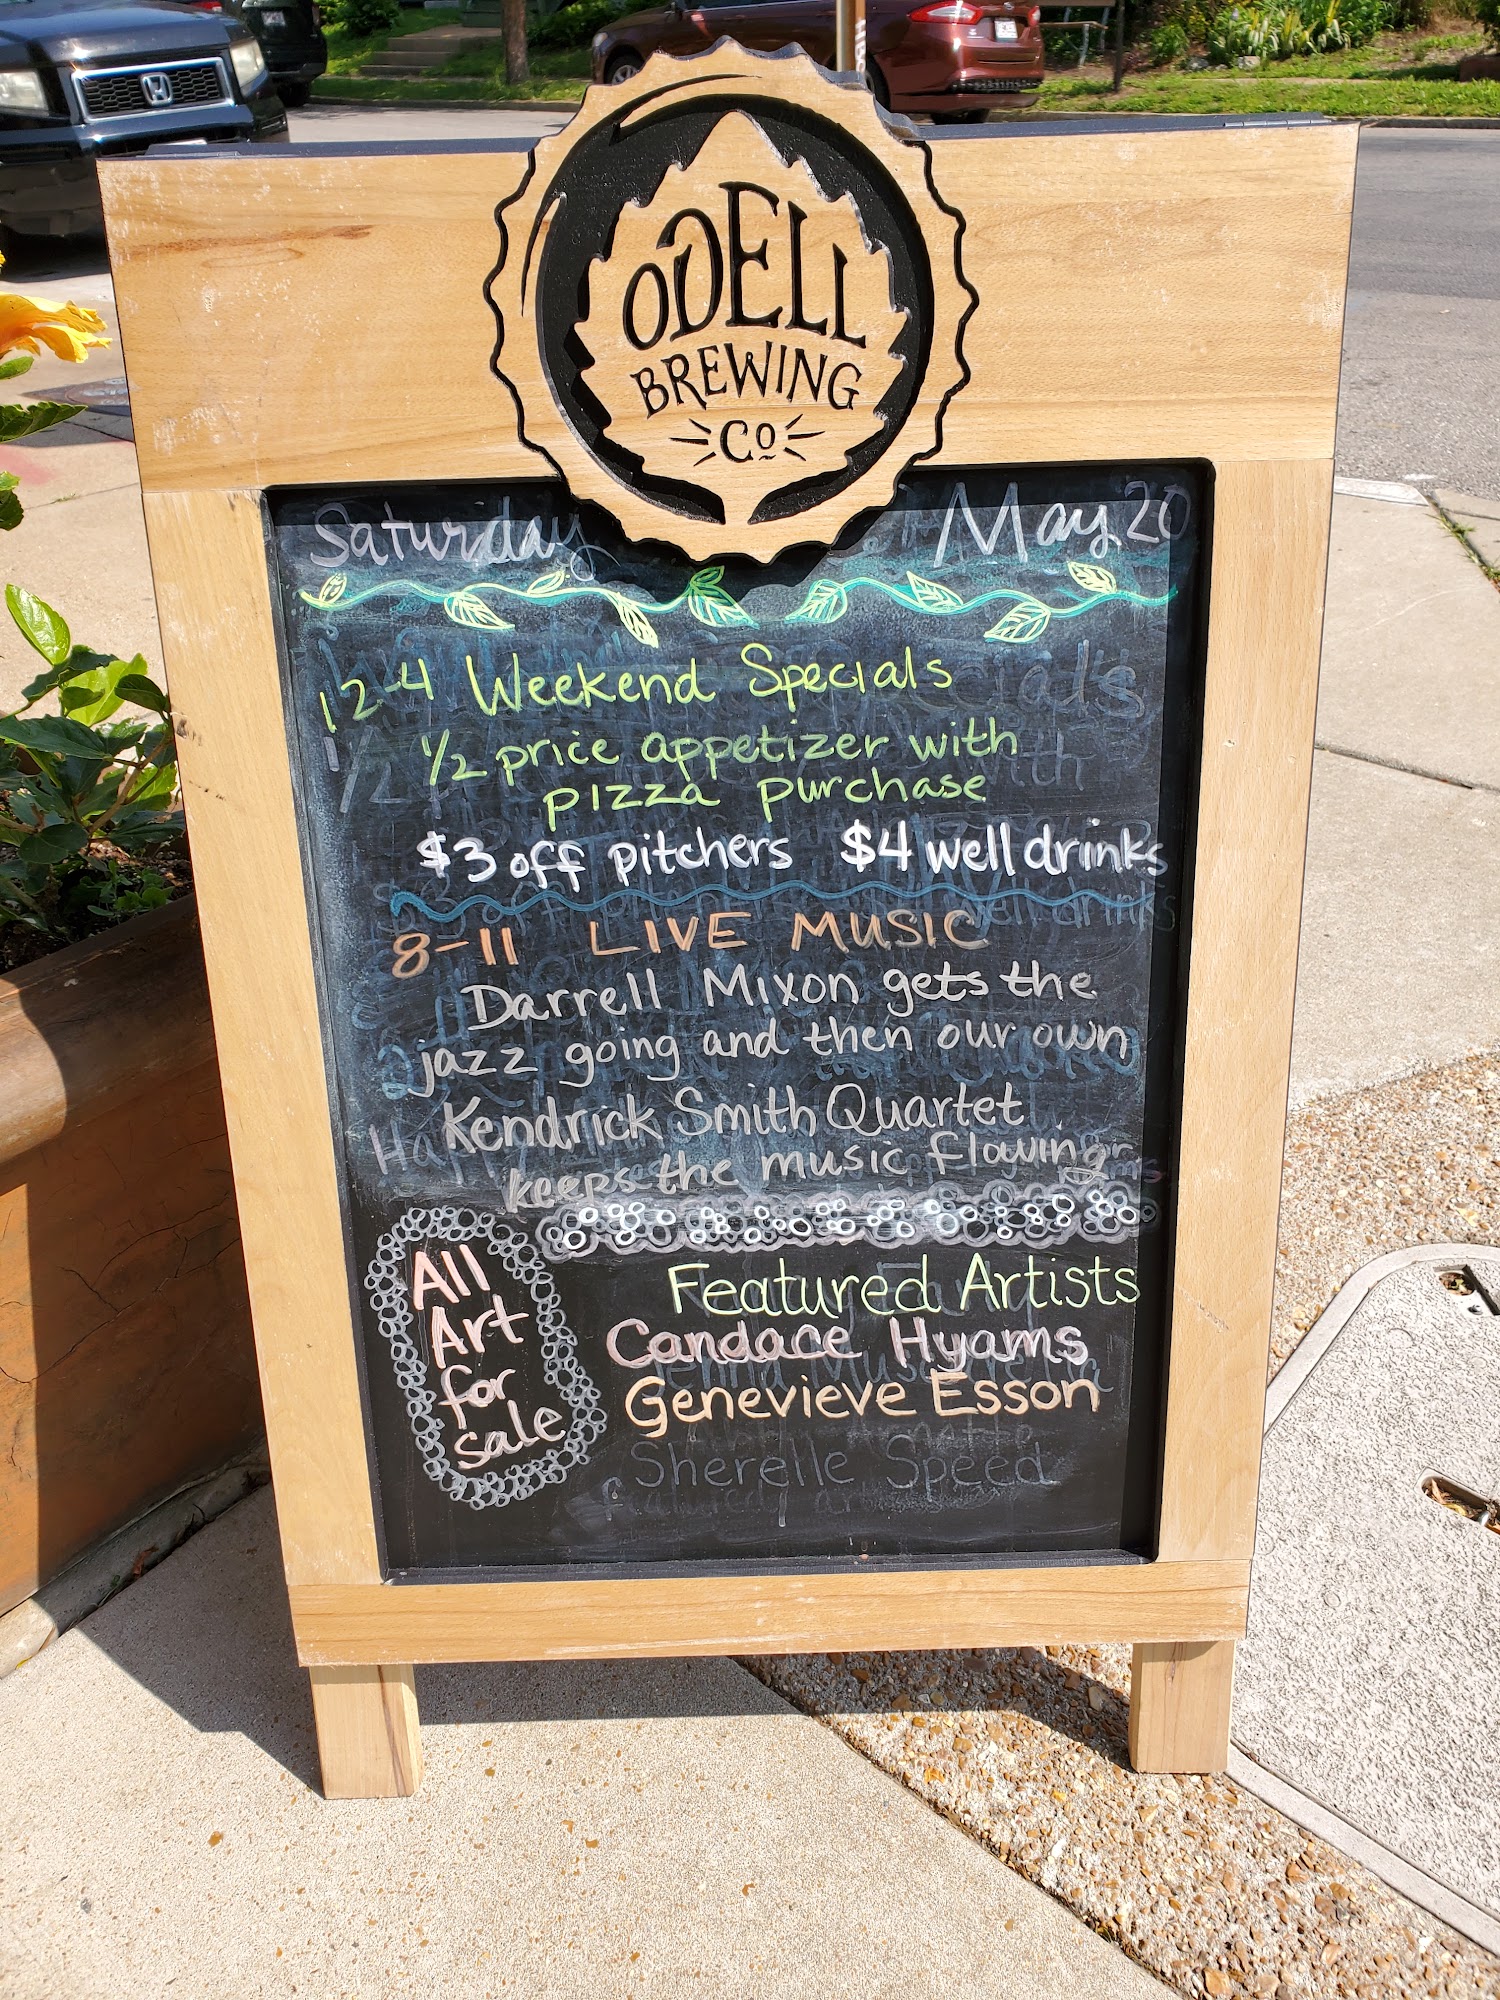 ODELL
BREWING
Co
Saturday May 20
12-4 Weekend Specials
1/2 price appetizer with
pizza purchase
$3 off pitchers $4 well drinks
8-11 LIVE MUSIC
Darrell Mixon gets the
jazz going and then our own
Kendrick Smith Quartet
keeps the music flowing
All
Art
for
sale
Featured Artists
Candace Hyams
Genevieve Esson
Sherelle Speed